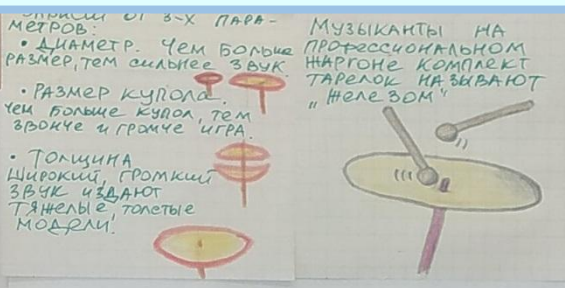 ЗАВИСИТ ОТ 3-Х ПАРА-
МЕТРОВ:
• ДИАМЕТР. ЧЕМ БОЛЬШЕ
РАЗМЕР, ТЕМ СИЛЬНЕЕ ЗВУК.
• РАЗМЕР КУПОЛА.
ЧЕМ БОЛЬШЕ КУПОЛ, ТЕМ
ЗВОНЧЕ И ГРОМЧЕ ИГРА.
• ТОЛЩИНА
ШИРОКИЙ, ГРОМКИЙ
ЗВУК ИЗДАЮТ
ТЯЖЕЛЫЕ, ТОЛСТЫЕ
МОДЕЛИ.
МУЗЫКАНТЫ НА
ПРОФЕССИОНАЛЬНОМ
ЖАРГОНЕ КОМПЛЕКТ
ТАРЕЛОК НАЗЫВАЮТ
„ЖЕЛЕЗОМ“